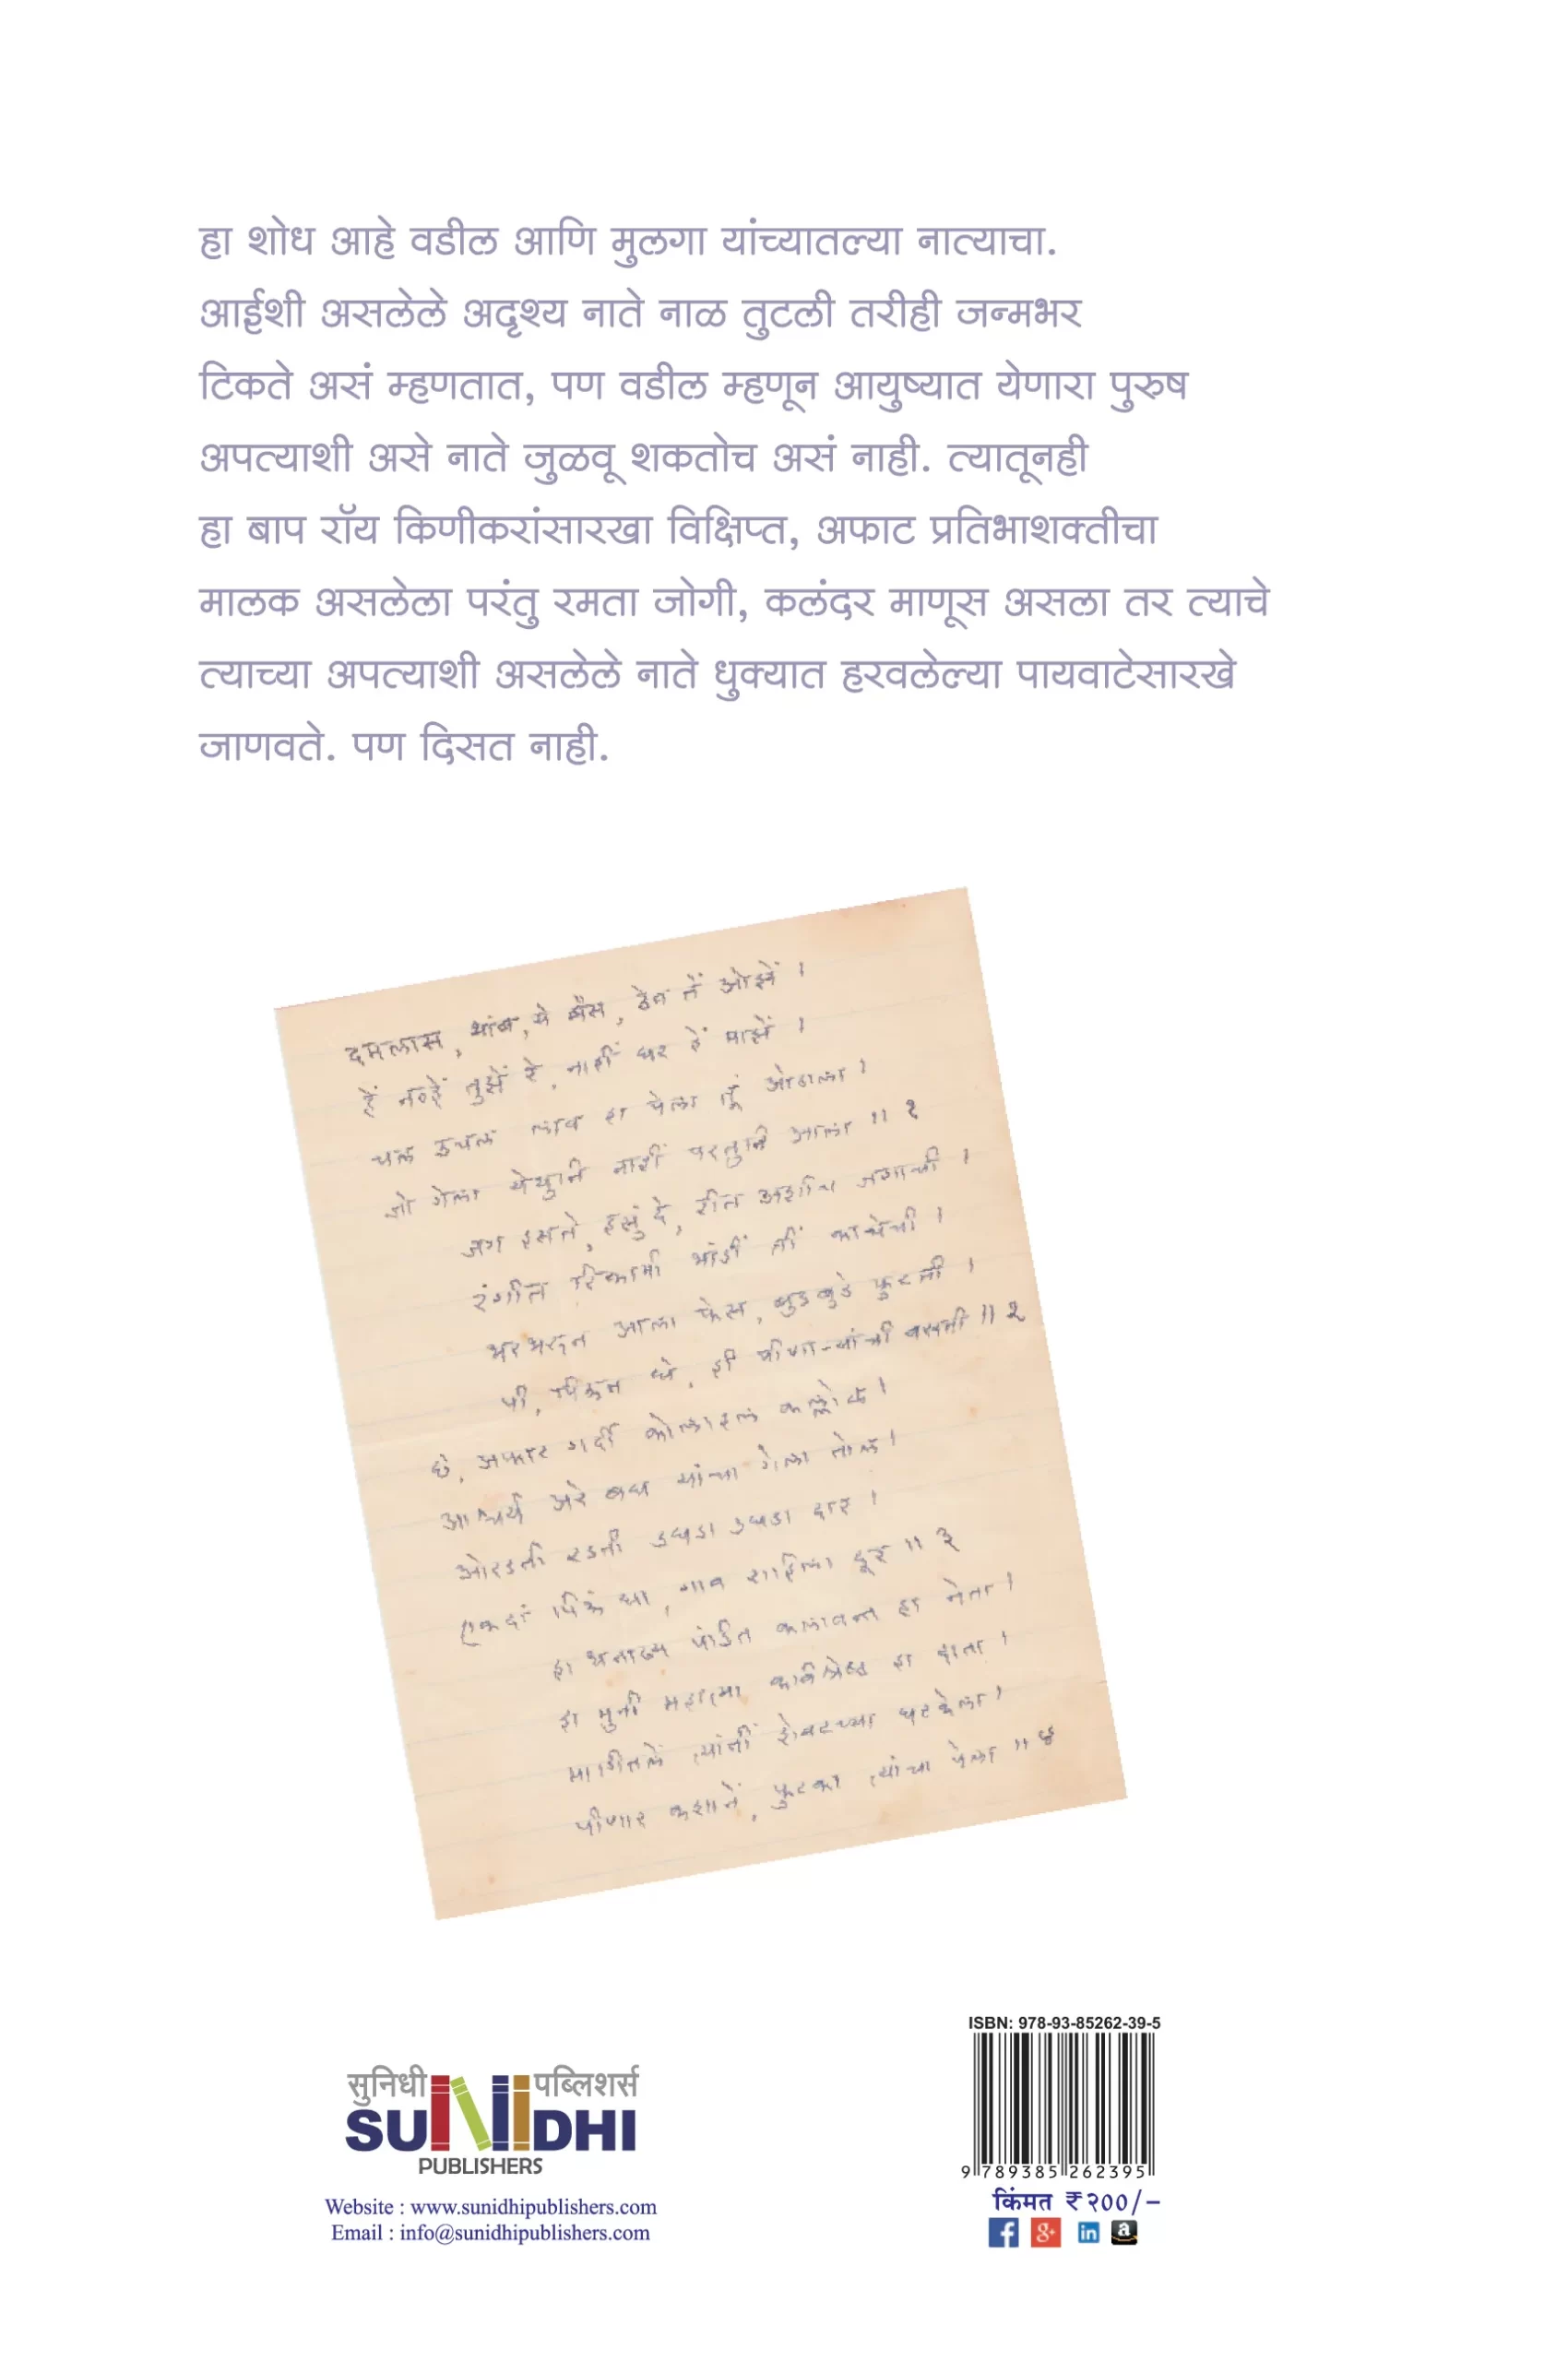 हा शोध आहे वडील आणि मुलगा यांच्यातल्या नात्याचा.
आईशी असलेले अदृश्य नाते नाळ तुटली तरीही जन्मभर
टिकते असं म्हणतात, पण वडील म्हणून आयुष्यात येणारा पुरुष
अपत्याशी असे नाते जुळवू शकतोच असं नाही. त्यातूनही
हा बाप रॉय किणीकरांसारखा विक्षिप्त, अफाट प्रतिभाशक्तीचा
मालक असलेला परंतु रमता जोगी, कलंदर माणूस असला तर त्याचे
त्याच्या अपत्याशी असलेले नाते धुक्यात हरवलेल्या पायवाटेसारखे
जाणवते. पण दिसत नाही.
दमलास, थांब, ये बैस, ठेव तें ओझें ।
हें नव्हें तुझें रे, नाहीं घर हें माझें ।
चल उचल लाव हा पेला तूं ओठाला ।
जो गेला येथुनि नाहीं परतुनि आला ॥ १
जग हसते, हसुं दे, रीत अशीच जगाची ।
रंगीत रिकामी भांडीं तीं काचेची ।
भरभरून आला फेस, बुडबुडे फुटती ।
पी, पिऊन घे, ही पीणाऱ्यांची वसती ॥ २
छे, अफाट गर्दी कोलाहल कल्लोळ ।
आश्चर्य अरे बघ यांचा गेला तोल ।
ओरडती रडती उघडा उघडा दार ।
एकदां पिऊं द्या, गाव राहिला दूर ॥ ३
हा धनाढ्य पंडित कलावन्त हा नेता ।
हा मुनी महात्मा कविश्रेष्ठ हा दाता ।
मागीतलें त्यांनीं शेवटच्या घटकेला ।
पीणार कशानें, फुटका त्यांचा पेला ॥ ४
सुनिधी पब्लिशर्स
SUNIDHI
PUBLISHERS
Website : www.sunidhipublishers.com
Email : info@sunidhipublishers.com
ISBN: 978-93-85262-39-5
9 789385 262395
किंमत ₹ २००/–
f g+ in a